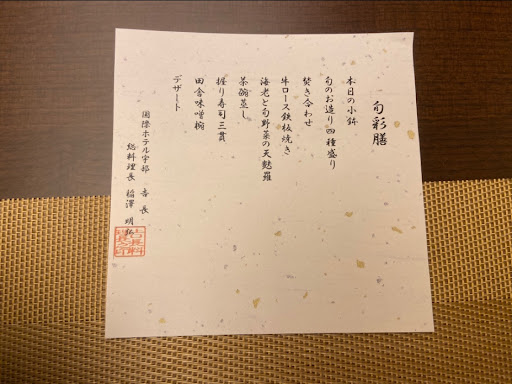 旬彩膳
本日の小鉢
旬のお造り四種盛り
焚き合わせ
牛ロース鉄板焼き
海老と旬野菜の天麩羅
茶碗蒸し
握り寿司三貫
田舎味噌椀
デザート
国際ホテル宇部 吉長
総料理長 稲澤 明弘